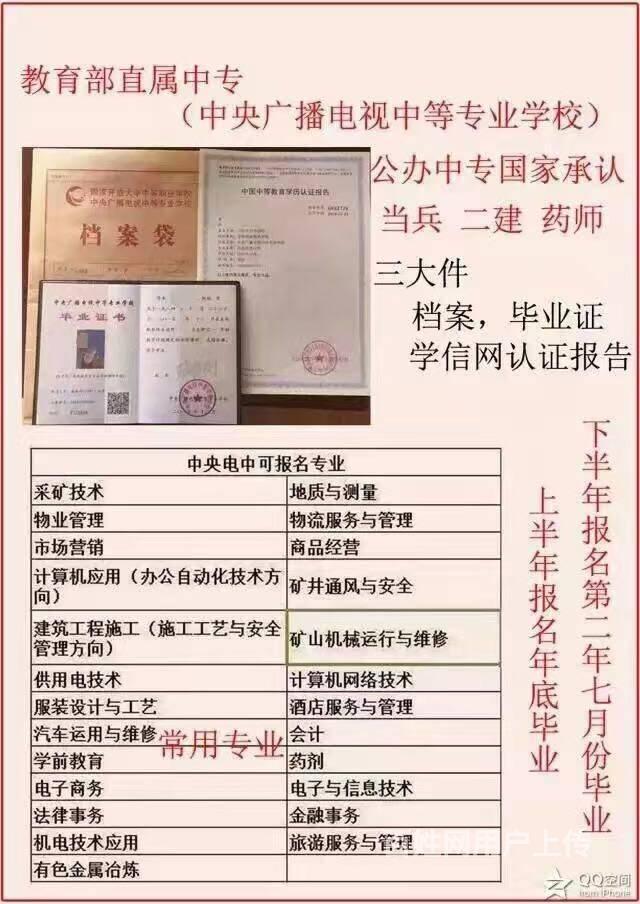 教育部直属中专
（中央广播电视中等专业学校）
公办中专国家承认
当兵 二建 药师
三大件
档案，毕业证
学信网认证报告
国家开放大学中等职业学校
中央广播电视中等专业学校
档案袋
中国中等教育学历认证报告
中央广播电视中等专业学校
毕业证书
中央电中可报名专业
采矿技术 地质与测量
物业管理 物流服务与管理
市场营销 商品经营
计算机应用（办公自动化技术方
向） 矿井通风与安全
建筑工程施工（施工工艺与安全
管理方向） 矿山机械运行与维修
供用电技术 计算机网络技术
服装设计与工艺 酒店服务与管理
汽车运用与维修 会计
常用专业
学前教育 药剂
电子商务 电子与信息技术
法律事务 金融事务
机电技术应用 旅游服务与管理
有色金属冶炼
下半年报名第二年七月份毕业
上半年报名年底毕业
百姓网用户上传
QQ空间
from iPhone